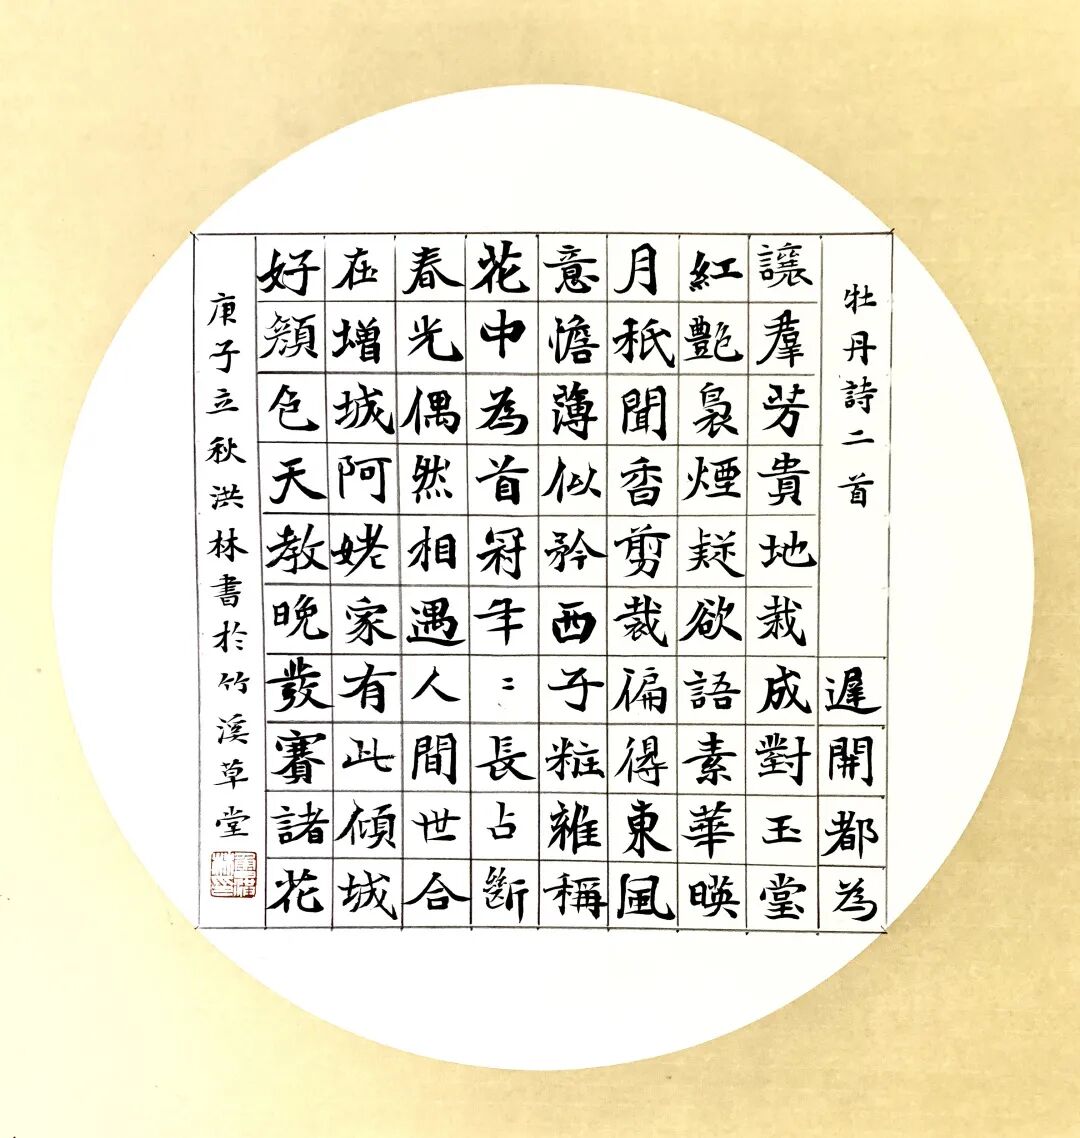 牡丹詩二首
遲開都為
讓羣芳貴地栽成對玉堂
紅艷裊煙疑欲語素華暎
月秖聞香剪裁偏得東風
意憺薄似矜西子粧雅稱
花中為首冠年〻長占斷
春光偶然相遇人間世合
在增城阿姥家有此傾城
好顏色天教晚發賽諸花
庚子立秋洪林書於竹溪草堂